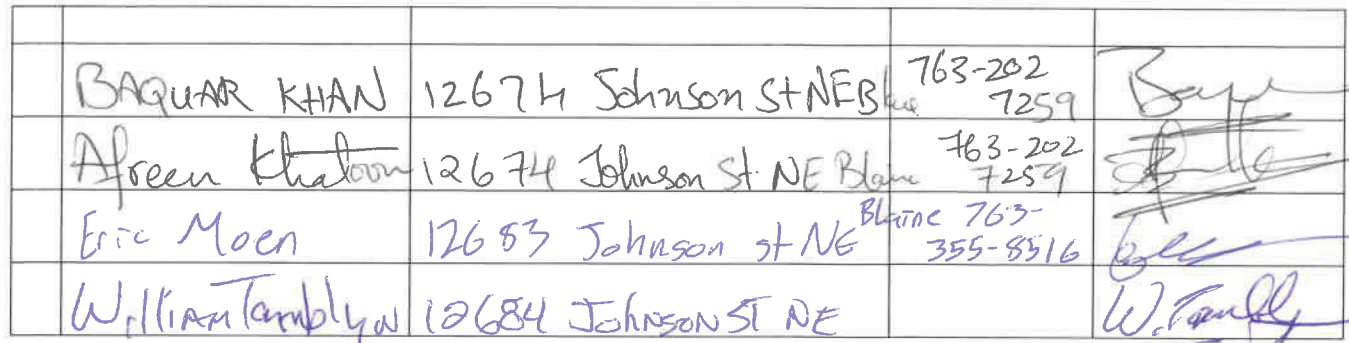 BAQUAR KHAN 12674 Johnson St NE Blaine 763-202 7259
Afreen Khatoon 12674 Johnson St. NE Blaine 763-202 7259
Eric Moen 12683 Johnson St NE Blaine 763-355-8516
William Tamblyn 12684 Johnson ST NE W. Tambly